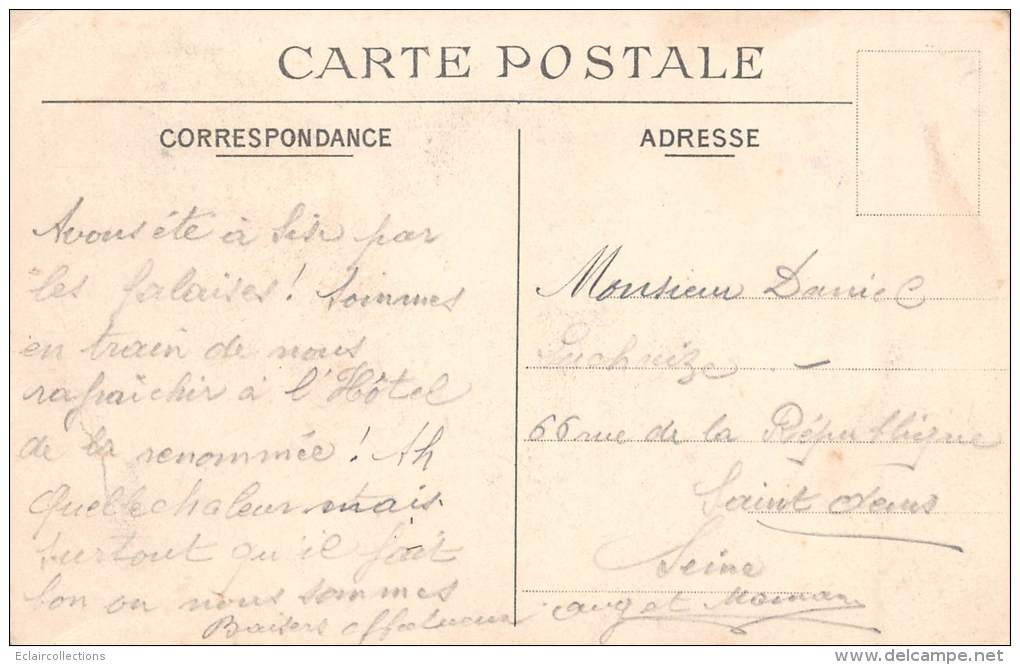 CARTE POSTALE
CORRESPONDANCE
ADRESSE
Avons été à par
les falaises ! Sommes
en train de nous
rafraîchir à l'Hôtel
de la renommée ! Ah
Quelle chaleur mais
surtout qu'il fait
bon ou nous sommes
Baisers affectueux
Monsieur Daniel
66 rue de la République
Saint Denis
Seine
et Maman
Eclaircollections
www.delcampe.net